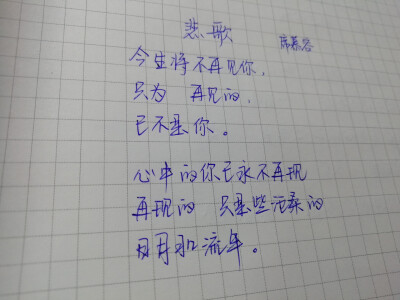 悲歌
席慕容
今生将不再见你，
只为 再见的，
已不是你。
心中的你已永不再现
再现的 只是些沧桑的
日月和流年。